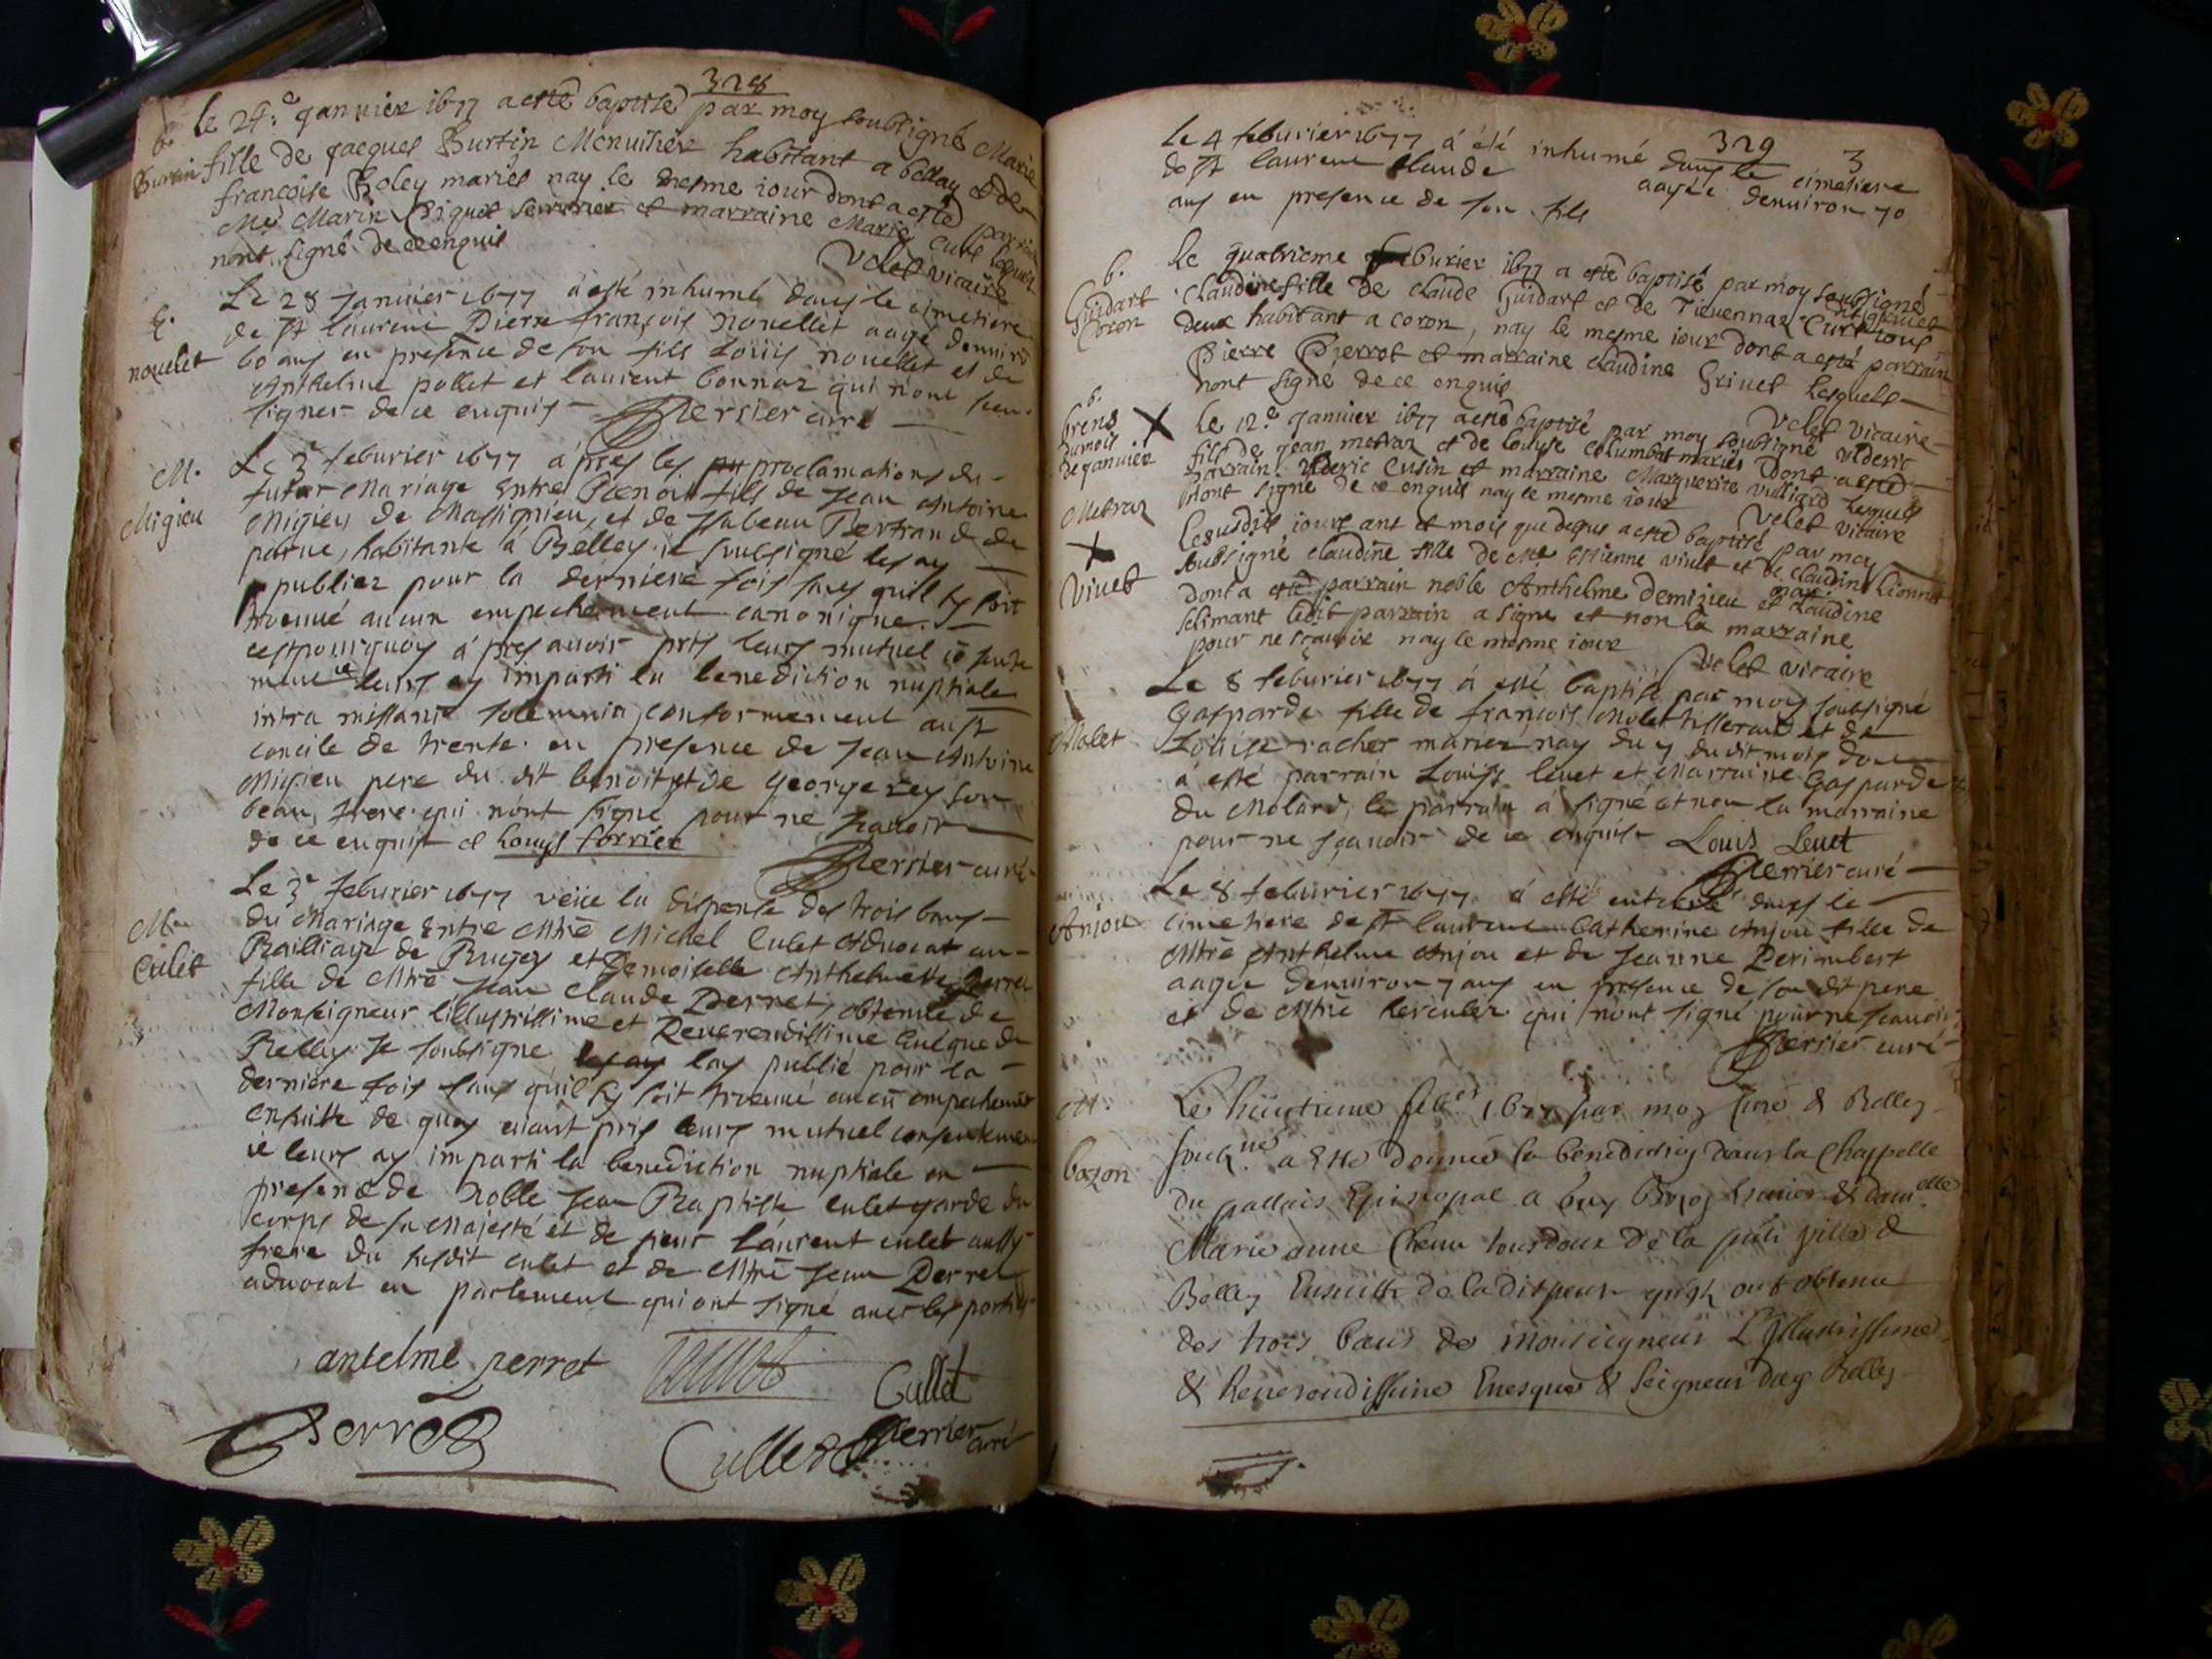 328
b. le 24e ganvier 1677 a esté baptisé par moy soubsigné Marie
Burtin fille de jacques Burtin Menuisier habitant a bellay et de
francoise Boley mariés nay le mesme iour dont a esté parrain
Me Marin Piquet serrurier et marraine Marie Curt lesquels
nont signé de ce enquis
Velet vicaire
E. Le 28 Janvier 1677 a esté inhumé dans le cimetiere
nouelet de st laurent Pierre françois Nouellet aagé denviron
60 ans en presence de son fils Loüis nouellet et de
Anthelme pollet et laurent bonnar qui nont sceu
signer de ce enquis Perrier curé
M. Le 3e feburier 1677 apres les proclamations du
Migieu futur Mariage Entre Benoit fils de Jean Antoine
Migieu de Massignieu, et de Isabeau Bertrand de
parue, habitante à Belley ie soubsigné les ay
publiez pour la derniere fois sans quil sy soit
trouué aucun empechement canonique.
cestpourquoy apres auoir pris leurs mutuel consente
ment ie leurs ay imparti la benediction nuptiale
intra missarum solemnia, conformement au st
concile de trente en presence de Jean Antoine
Migieu pere du dit benoit et de George Rey son
beau frere qui nont signé pour ne scauoir
de ce enquis et Louys forrier
Perrier curé
Le 3e feburier 1677 veüe la dispense des trois bans
M. du Mariage Entre Mtre Michel Culet Advocat au
Culet Bailliage de Bugey et Demoiselle Anthelmette Perret
fille de Mtre Jean Claude Perret, obtenüe de
Monseigneur lillustrissime et Reuerendissime Euéque de
Belley Je soubsigné lay publié pour la
derniere fois sans quil sy soit trouué aucū empechemēt
Ensuitte de quoy aiant pris leurs mutuel consentement
ie leurs ay imparti la benediction nuptiale en
presence de Noble Jean Baptiste culet garde du
corps de sa Majesté et de sieur laurent culet aussy
frere du susdit culet et de Mtre Jean Perret
aduocat en parlement qui ont signé auec les parties
antelme perret
Cullet
Perret
Cullet Perrier curé
329 3
Le 4 feburier 1677 á été inhumé dans le cimetiere
de st laurent Claude aagée denuiron 70
ans en presence de son fils
b. Le quatrieme feburier 1677 a esté baptisé par moy soubsigné
Guidart Claudine fille de claude Guidart et de Tieuennaz Curt tous
Coron deux habitant a coron, nay le mesme iour dont a esté parrain
Pierre Pierrot et marraine claudine Grinet Lesquels
nont signé de ce enquis
Velet vicaire
b. brens dumois de ganuier X le 12e ganuier 1677 a esté baptisé par moy soubsigné Vlderic
fils de jean metraz et de Louyse Columbat mariés Dont a esté
parrain Vlderic Cusin et marraine Marguerite vulliard Lesquels
Metraz nont signé de ce enquis nay le mesme iour
Velet vicaire
X Lesusdits iours ant et mois que dessus a esté baptisé par moy
Vinet soubsigné claudine fille de Me Estienne vinet et de claudine Lionnet
dont a esté parrain noble Anthelme demigieu et claudine
selimant ledit parrain a signé et non la marraine
pour ne scauoir nay le mesme iour
Velet vicaire
Le 8 feburier 1677 á esté baptisé par moy soubsigné
Gasparde fille de françois Molet tisserant et de
Molet Loüise racher mariez nay du 7 dudit mois dont
á esté parrain Louis Leuet et Marraine Gasparde
du Molard, le parrain a signé et non la marraine
pour ne sçauoir de ce enquis Louis Leuet
Perrier curé
Le 8 feburier 1677 á esté enterré dans le
Anjou cimetiere de st laurent Catherine Anjou fille de
Mtre Anthelme Anjou et de Jeanne Perimbert
aagée denuiron 7 ans en presence de son dit pere
et de Mtre herculer qui nont signé pour ne scauoir
Perrier curé
M. Le huictieme feber 1677 par moy curé de Belley
bozon soubné a esté donnée la benediction dans la Chappelle
du pallais Episcopal a Guy Bozon &amp; damelle
Marie anne de la ville de
Belley Ensuitte de la dispense quils ont obtenu
des trois bans de Monseigneur L'Illustrissime
&amp; Reuerendissime Euesque &amp; Seigneur de Belley